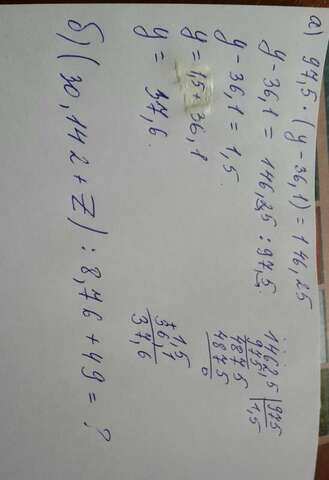 а) 97,5 · (y - 36,1) = 146,25
y - 36,1 = 146,25 : 97,5
y - 36,1 = 1,5
y = 1,5 + 36,1
y = 37,6.
1462,5 | 975
975 | 1,5
4875
4875
0
1,5
36,1
37,6
б) (30,142 + Z) : 8,76 + 49 = ?